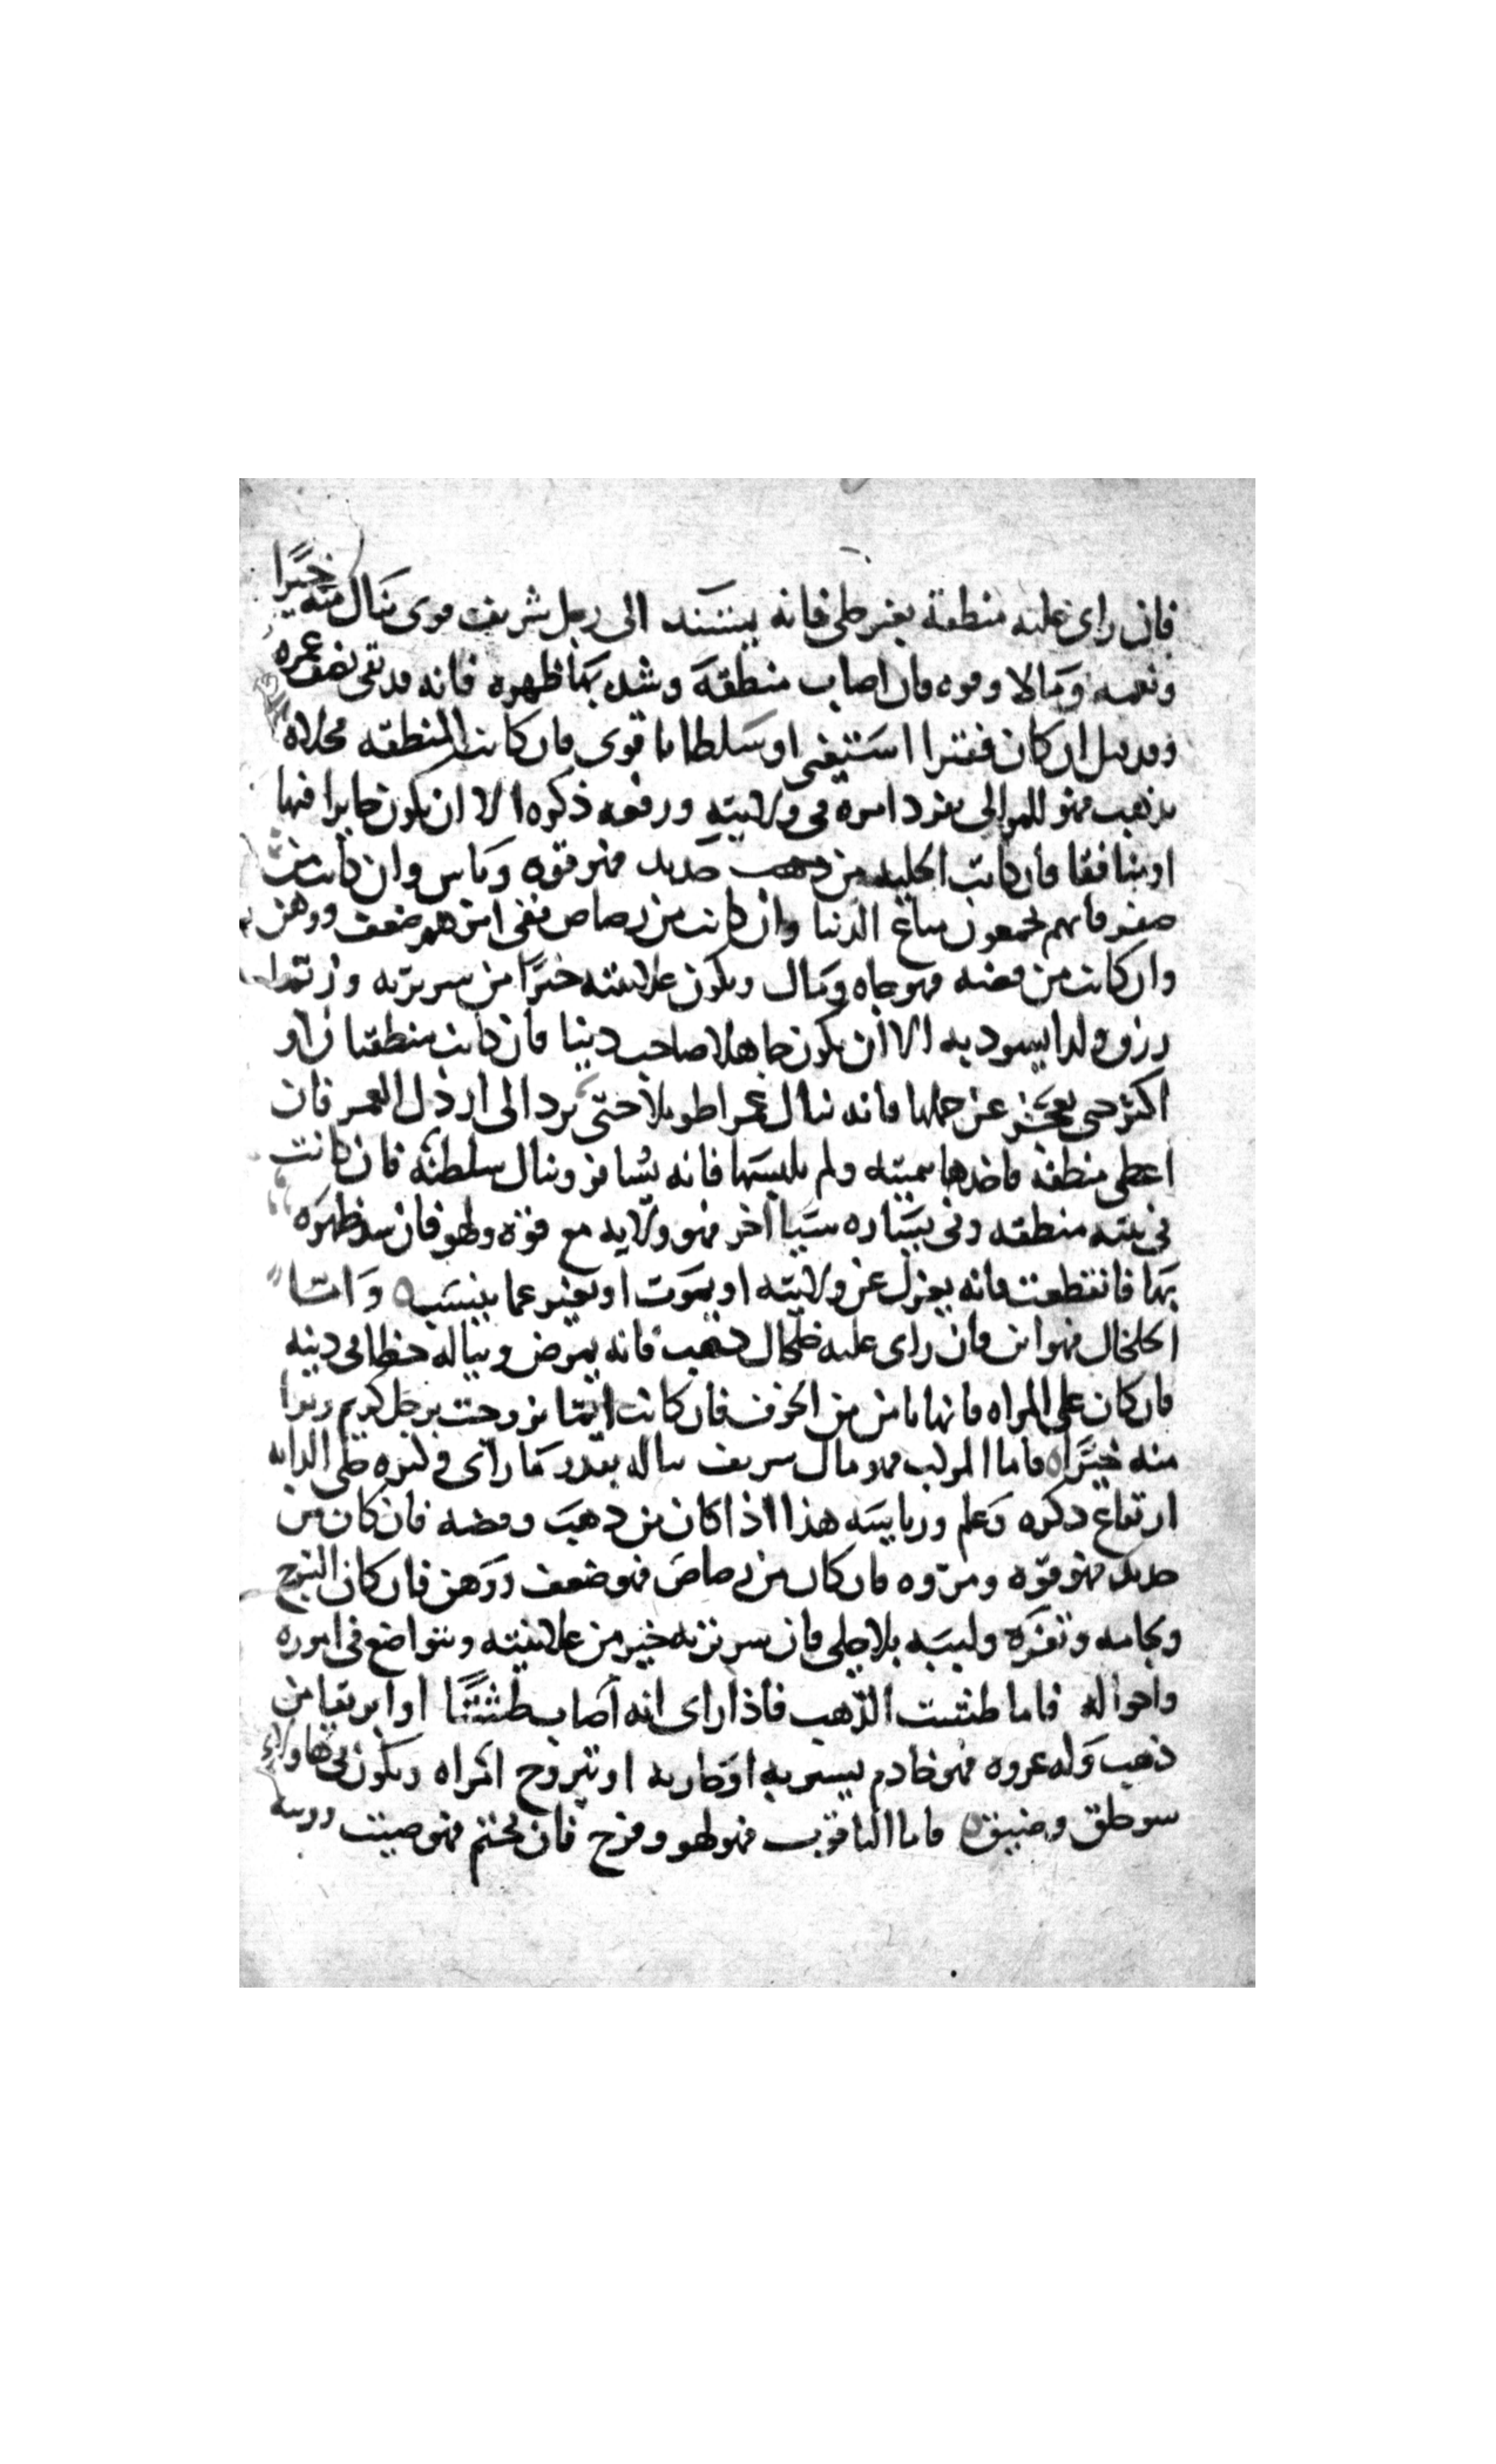 فان راى عليه منطقة بغير حلى فانه يستند الى رجل شريف قوى ينال منه خيرا
ونعمه ومالا وقوه فان اصاب منطقة وشد بها ظهره فانه قد بقى نصف عمره
وقد قيل ان كان فقيرا استغنى او سلطانا قوى فان كانت المنطقه محلاه
بذهب فهو للموالى نفود امره فى ولايته ورفعه ذكره الا ان يكون جايرا فيها
او منافقا فان كانت الحليه من حديد فهو قوه وباس وان كانت من
صفر فانهم يجمعون متاع الدنيا وان كانت من رصاص ففى امرهم ضعف ووهن
وان كانت من فضه فهو جاه ومال ويكون علانيته خيرا من سريرته
رزق ولدا يسود به الا ان يكون جاهلا صاحب دنيا فان كانت منطقتان او
اكثر حتى يعجز عن حملها فانه ينال عمرا طويلا حتى يرد الى ارذل العمر فان
اعطى منطقة فاخذها بيمينه ولم يلبسها فانه يسافر وينال سلطنة فان كانت
فى يمينه منطقه وفى يساره شيا اخر فهو ولايه مع قوة ولهو فان شد ظهره
بها فانقطعت فانه يعزل عن ولايته او يموت او يتغير عما ينسب واما
الخلخال فهو ابن فان راى عليه خلخال ذهب فانه يمرض ويناله خطا فى دينه
فان كان على المراه فانها تامن من الخوف فان كانت ايما تزوجت برجل كريم وترا
منه خيرا فاما المركب فهو مال شريف يناله بقدر ما راى وكثره حلى الدابه
ارتفاع ذكره وعلم ورياسه هذا اذا كان من ذهب وفضه فان كان من
حديد فهو قوه ومروه فان كان من رصاص فهو ضعف ووهن فان كان السرج
ولجامه وثفره ولببه بلا حلى فان سريرته خير من علانيته ويتواضع فى اموره
واحواله فاما طشت الذهب فاذا راى انه اصاب طشتا او ابريقا من
ذهب وله عروه فهو خادم يشتريه او جاريه او يتزوج امراه ويكون فى
سو خلق وضيق فاما الياقوت فهو لهو وفرح فان تختم فهو صيت